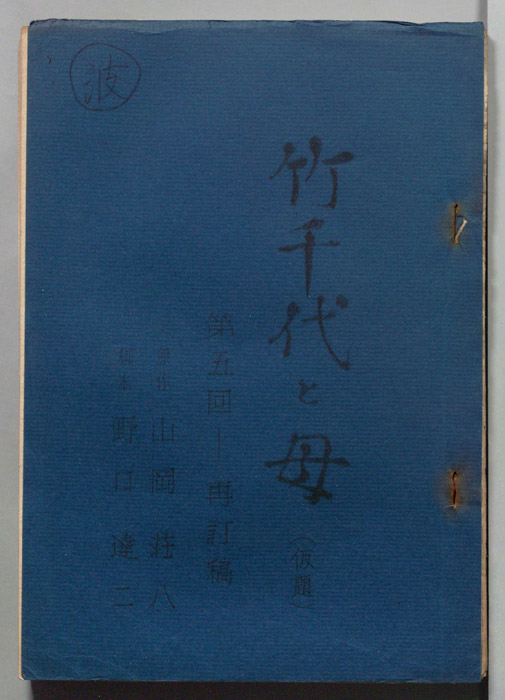 竹千代と母（仮題）
第五回―再訂稿
原作 山岡荘八
脚本 野口達二
波